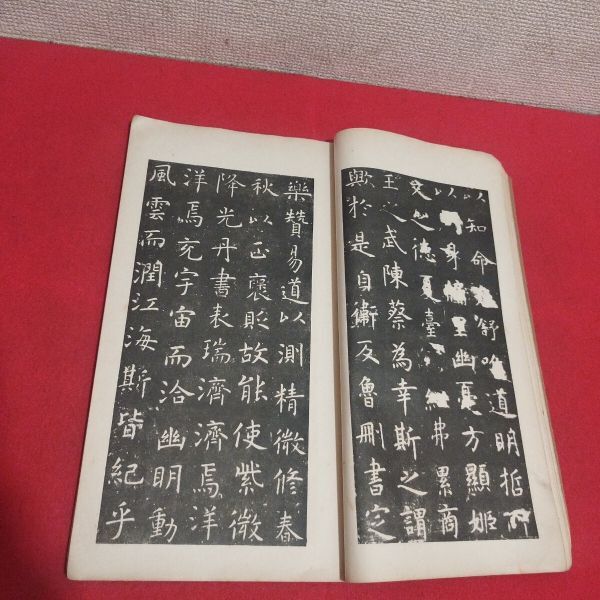 以知命舒唯道明哲可
以身里幽憂方顯姬
文之德夏臺弗累商
王之武陳蔡為幸斯之謂
歟於是自衛反魯刪書定
樂贊易道以測精微修春
秋以正褒貶故能使紫微
降光丹書表瑞濟濟焉洋
洋焉充宇宙而洽幽明動
風雲而潤江海斯皆紀乎